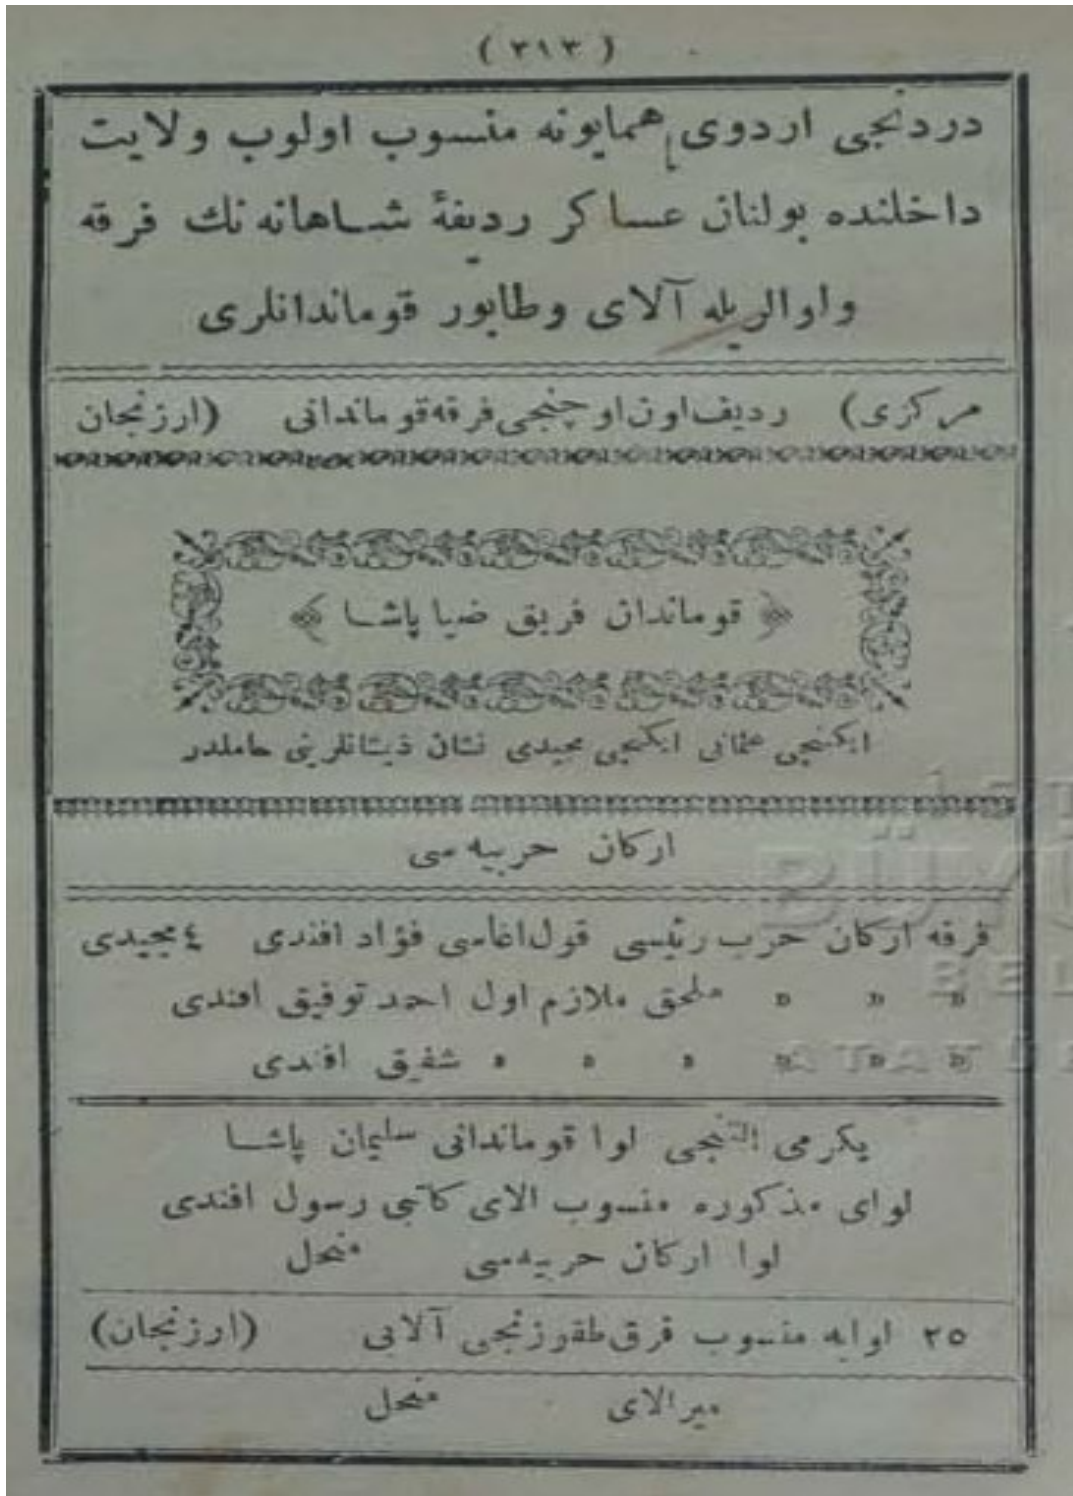 ( ٣١٣ )
دردنجی اردوی همایونه منسوب اولوب ولایت
داخلنده بولنان عساکر ردیفهٔ شاهانه نك فرقه
ولوالریله آلای وطابور قوماندانلری
مرکزی) ردیف اون اوچنجی فرقه قوماندانی (ارزنجان
﴿ قوماندان فریق ضیا پاشا ﴾
ایکنجی عثمانی ایکنجی مجیدی نشان ذیشانلرینی حاملدر
ارکان حربیه سی
فرقه ارکان حرب رئیسی قول اغاسی فؤاد افندی ٤ مجیدی
» » » ملحق ملازم اول احمد توفیق افندی
» » » » » » شفیق افندی
یکرمی التنجی لوا قوماندانی سلیمان پاشا
لوای مذکوره منسوب الای کاتبی رسول افندی
لوا ارکان حربیه سی منحل
٢٥ لوایه منسوب قرق طقوزنجی آلایی (ارزنجان)
میرالای منحل
BÜYÜ
BEL
ATATÜR